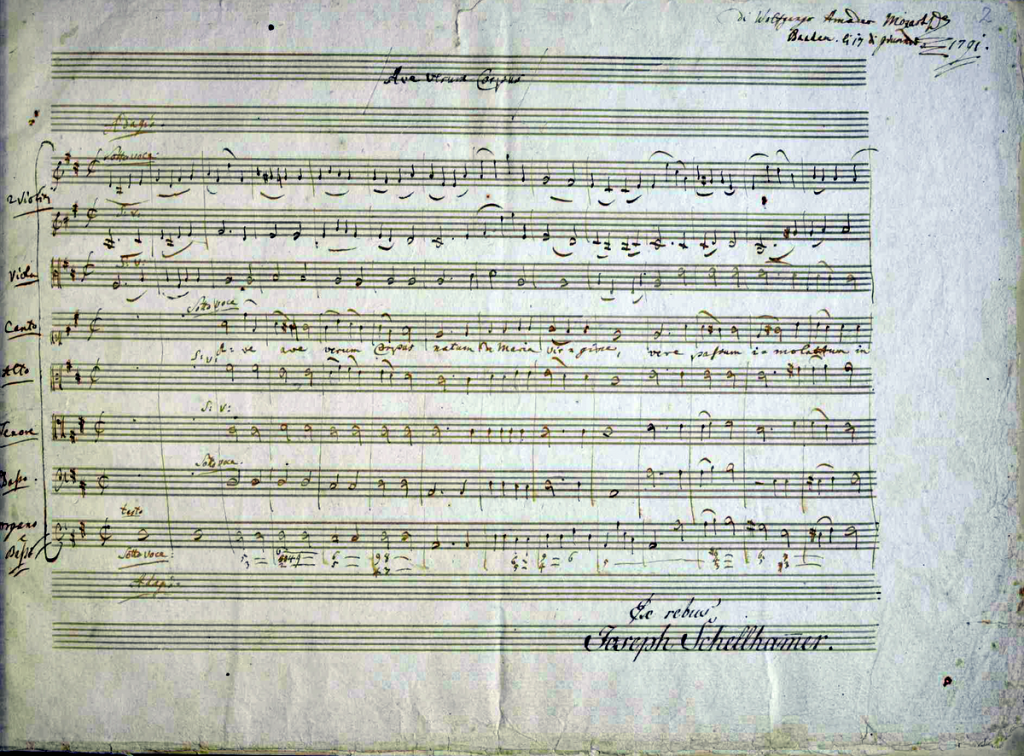 2
di Wolfgango Amadeo Mozart
Baaden. li 17 di giunio 1791.
Ave verum Corpus
Adagio.
2 Violini
Sotto voce.
S: v:
Viola
S: v:
Canto
Sotto voce
A: ve ave verum Corpus natum de Maria virgine, vere passum immolatum in
Alto
S: v:
Tenore
S: v:
Basso.
Sotto voce.
Organo
e
Basso
tasto
Sotto voce:
Adagio.
Ex rebus
Joseph Schellham̄er.